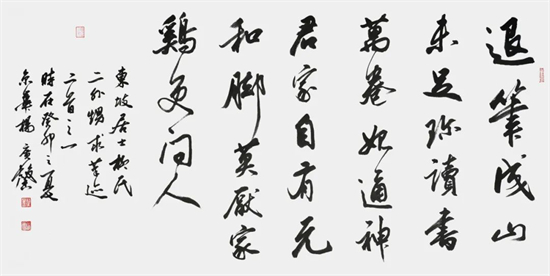 退筆成山
未足珍讀書
萬卷始通神
君家自有元
和脚莫厭家
鷄更问人
東坡居士柳氏
二外甥求筆迹
二首之一
時在癸卯之夏
京華楊廣馨